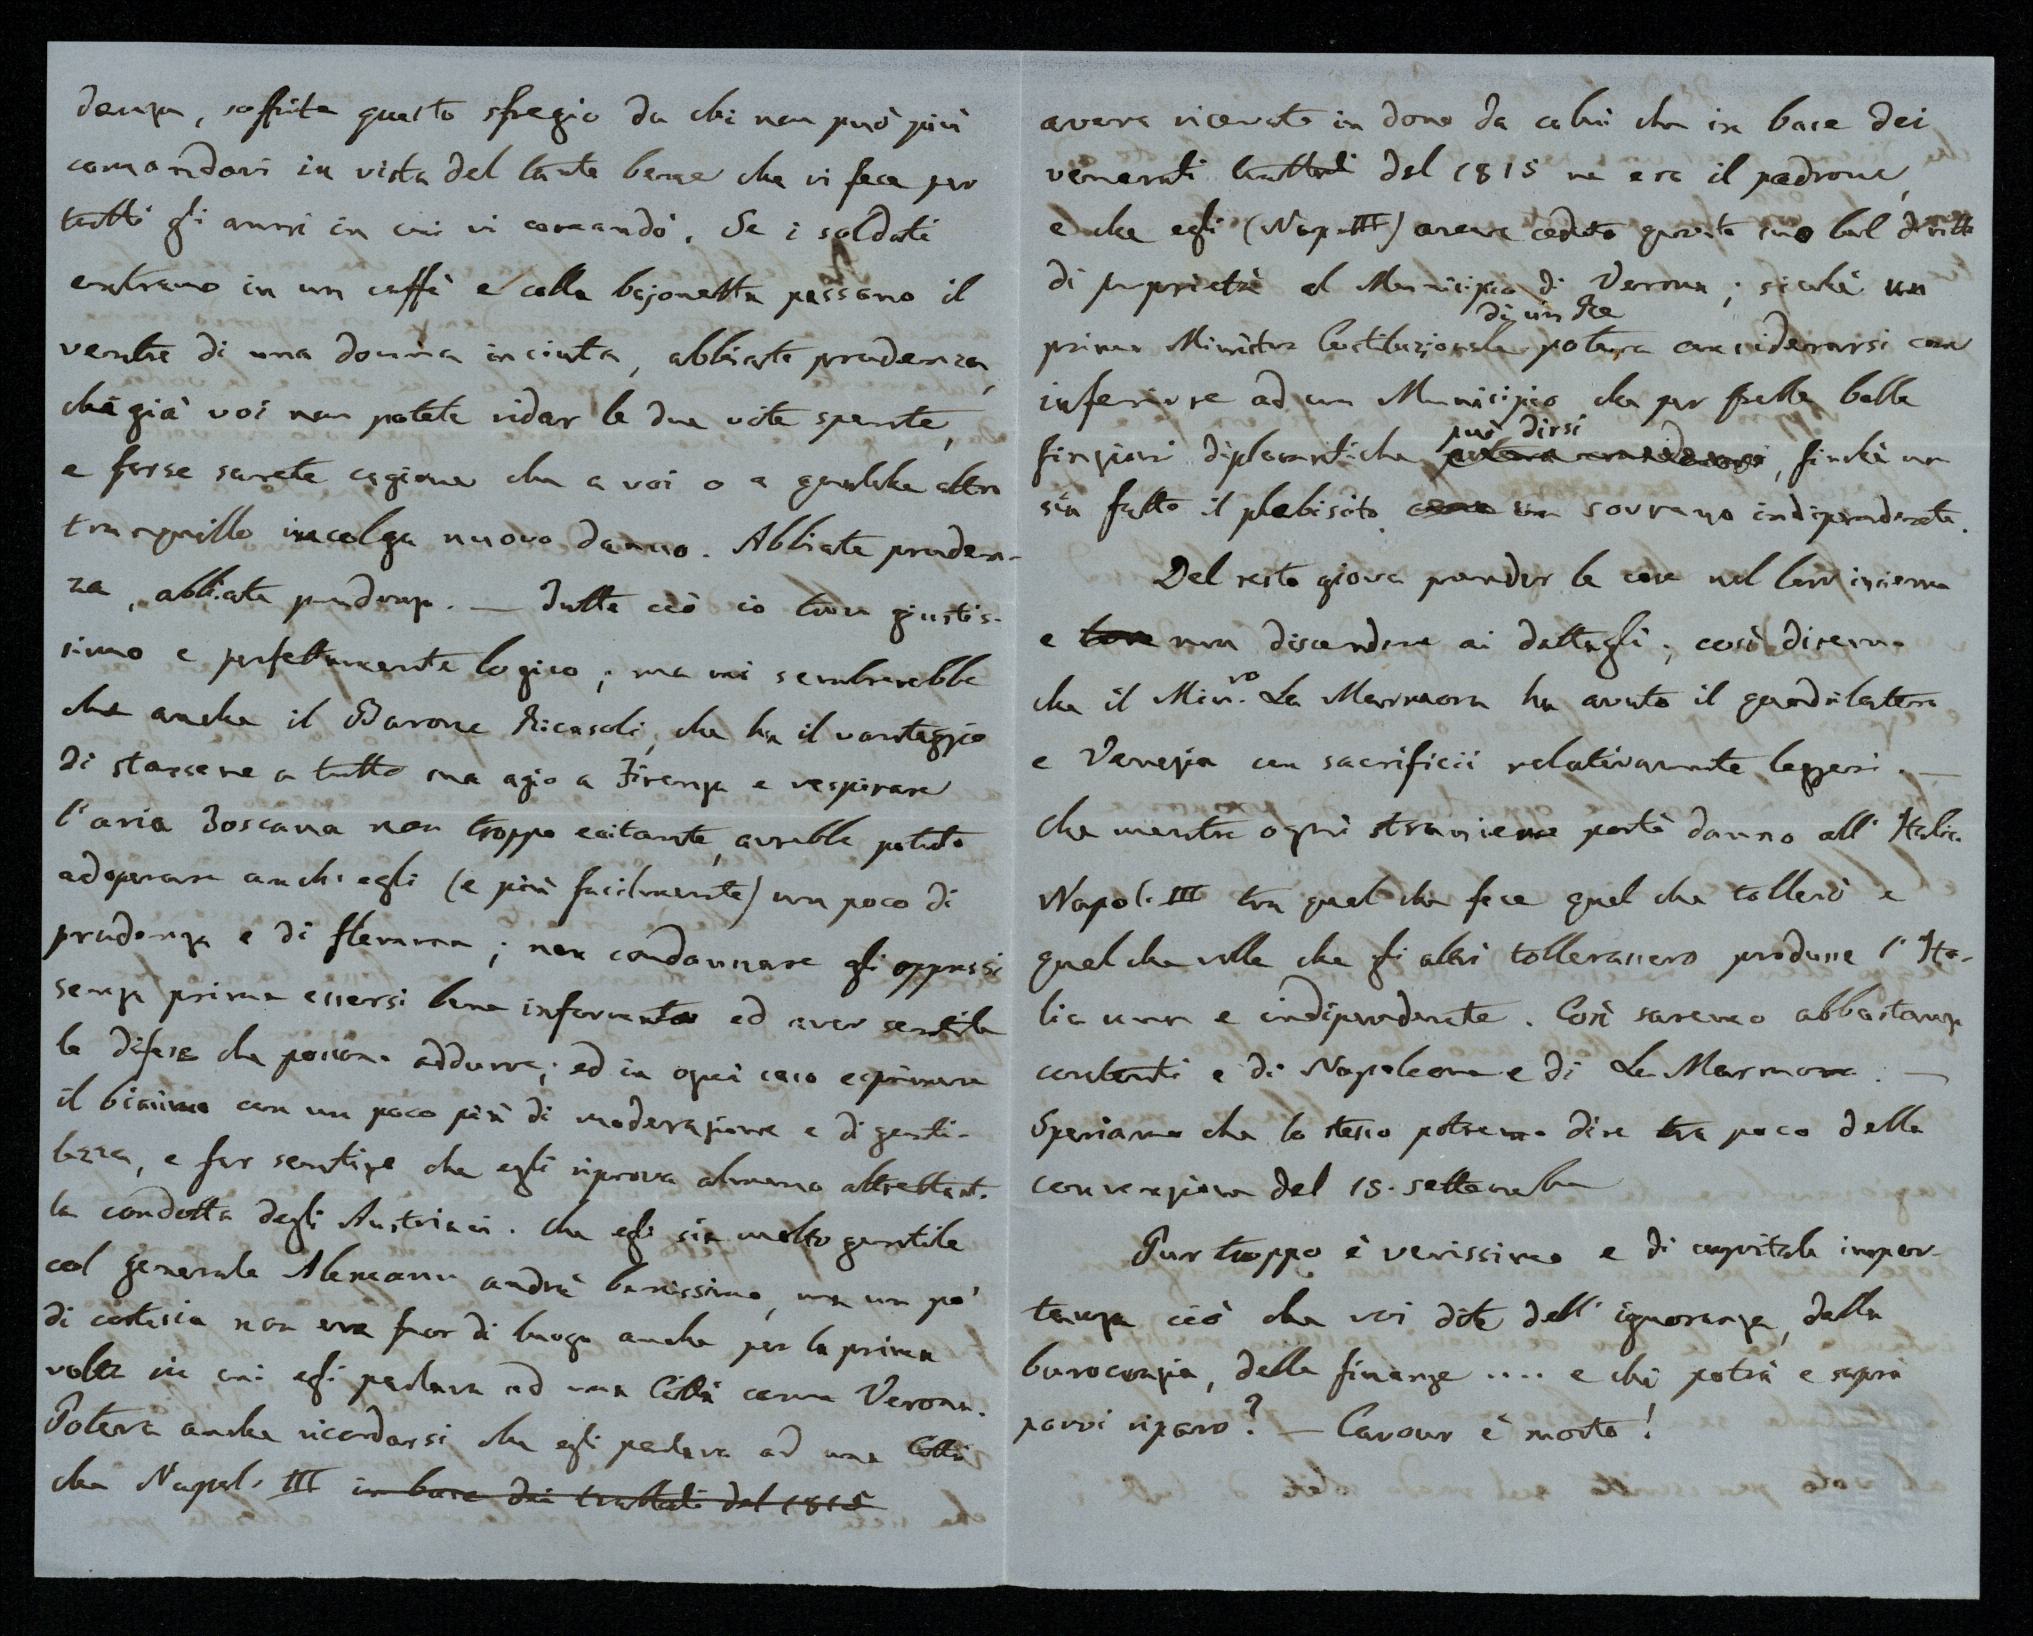 denza, soffrite questo sfregio da chi non può più
comandarvi in vista del tanto bene che vi fece per
tutti gli anni in cui vi comandò. Se i soldati
entrano in un caffè e colla bajonetta passano il
ventre di una donna incinta, abbiate prudenza,
chè già voi non potete ridar le due vite spente,
e forse sarete cagione che a voi o a qualche altro
tranquillo incolga nuovo danno. Abbiate pruden-
za, abbiate prudenza. — Tutto ciò io trovo giustis-
simo e perfettamente logico; ma mi sembrerebbe
che anche il Barone Ricasoli, che ha il vantaggio
di starsene a tutto suo agio a Firenze e respirare
l'aria Toscana non troppo eccitante, avrebbe potuto
adoperare anch'egli (e più facilmente) un poco di
prudenza e di flemma; non condannare gli oppressi
senza prima essersi bene informato ed aver sentite
le difese che possono addurre; ed in ogni caso esprimere
il biasimo con un poco più di moderazione e di genti-
lezza, e far sentire che egli riprova almeno altrettanto
la condotta degli Austriaci. Che egli sia molto gentile
col generale Alemann andrà benissimo, ma un po'
di cortesia non era fuor di luogo anche per la prima
volta in cui egli parlava ad una Città come Verona.
Poteva anche ricordarsi che egli parlava ad una Città
che Napol. III in base dei trattati del 1815
aveva ricevuto in dono da colui che in base dei
venerati trattati del 1815 ne era il padrone,
e che egli (Nap. III) aveva ceduto questo suo bel diritto
di proprietà al Municipio di Verona; sicchè un
di un Re
primo Ministro Costituzionale poteva considerarsi come
inferiore ad un Municipio, che per quelle belle
può dirsi
finzioni diplomatiche poteva considerarsi, finchè non
sia fatto il plebiscito come un sovrano indipendente.
Del resto giova prender le cose nel loro insieme
e non discendere ai dettagli; così diremo
che il Min.ro La Marmora ha avuto il quadrilatero
e Venezia con sacrificii relativamente leggeri. —
Che mentre ogni straniero portò danno all'Italia
Napol. III tra quel che fece quel che tollerò e
quel che volle che gli altri tollerassero produsse l'Ita-
lia una e indipendente. Così saremo abbastanza
contenti e di Napoleone e di La Marmora. —
Speriamo che lo stesso potremo dire tra poco della
convenzione del 15. settembre
Pur troppo è verissimo e di capitale impor-
tanza ciò che voi dite dell'ignoranza, della
burocrazia, delle finanze .... e chi potrà e saprà
porvi riparo? — Cavour è morto!